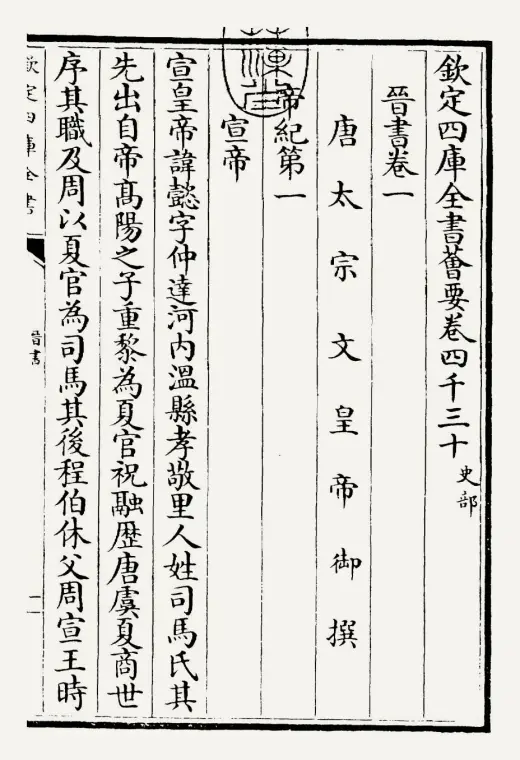 欽定四庫全書薈要卷四千三十 史部
晉書卷一
唐太宗文皇帝御撰
帝紀第一
宣帝
宣皇帝諱懿字仲達河内溫縣孝敬里人姓司馬氏其
先出自帝高陽之子重黎為夏官祝融歴唐虞夏商世
序其職及周以夏官為司馬其後程伯休父周宣王時
欽定四庫全書
晉書